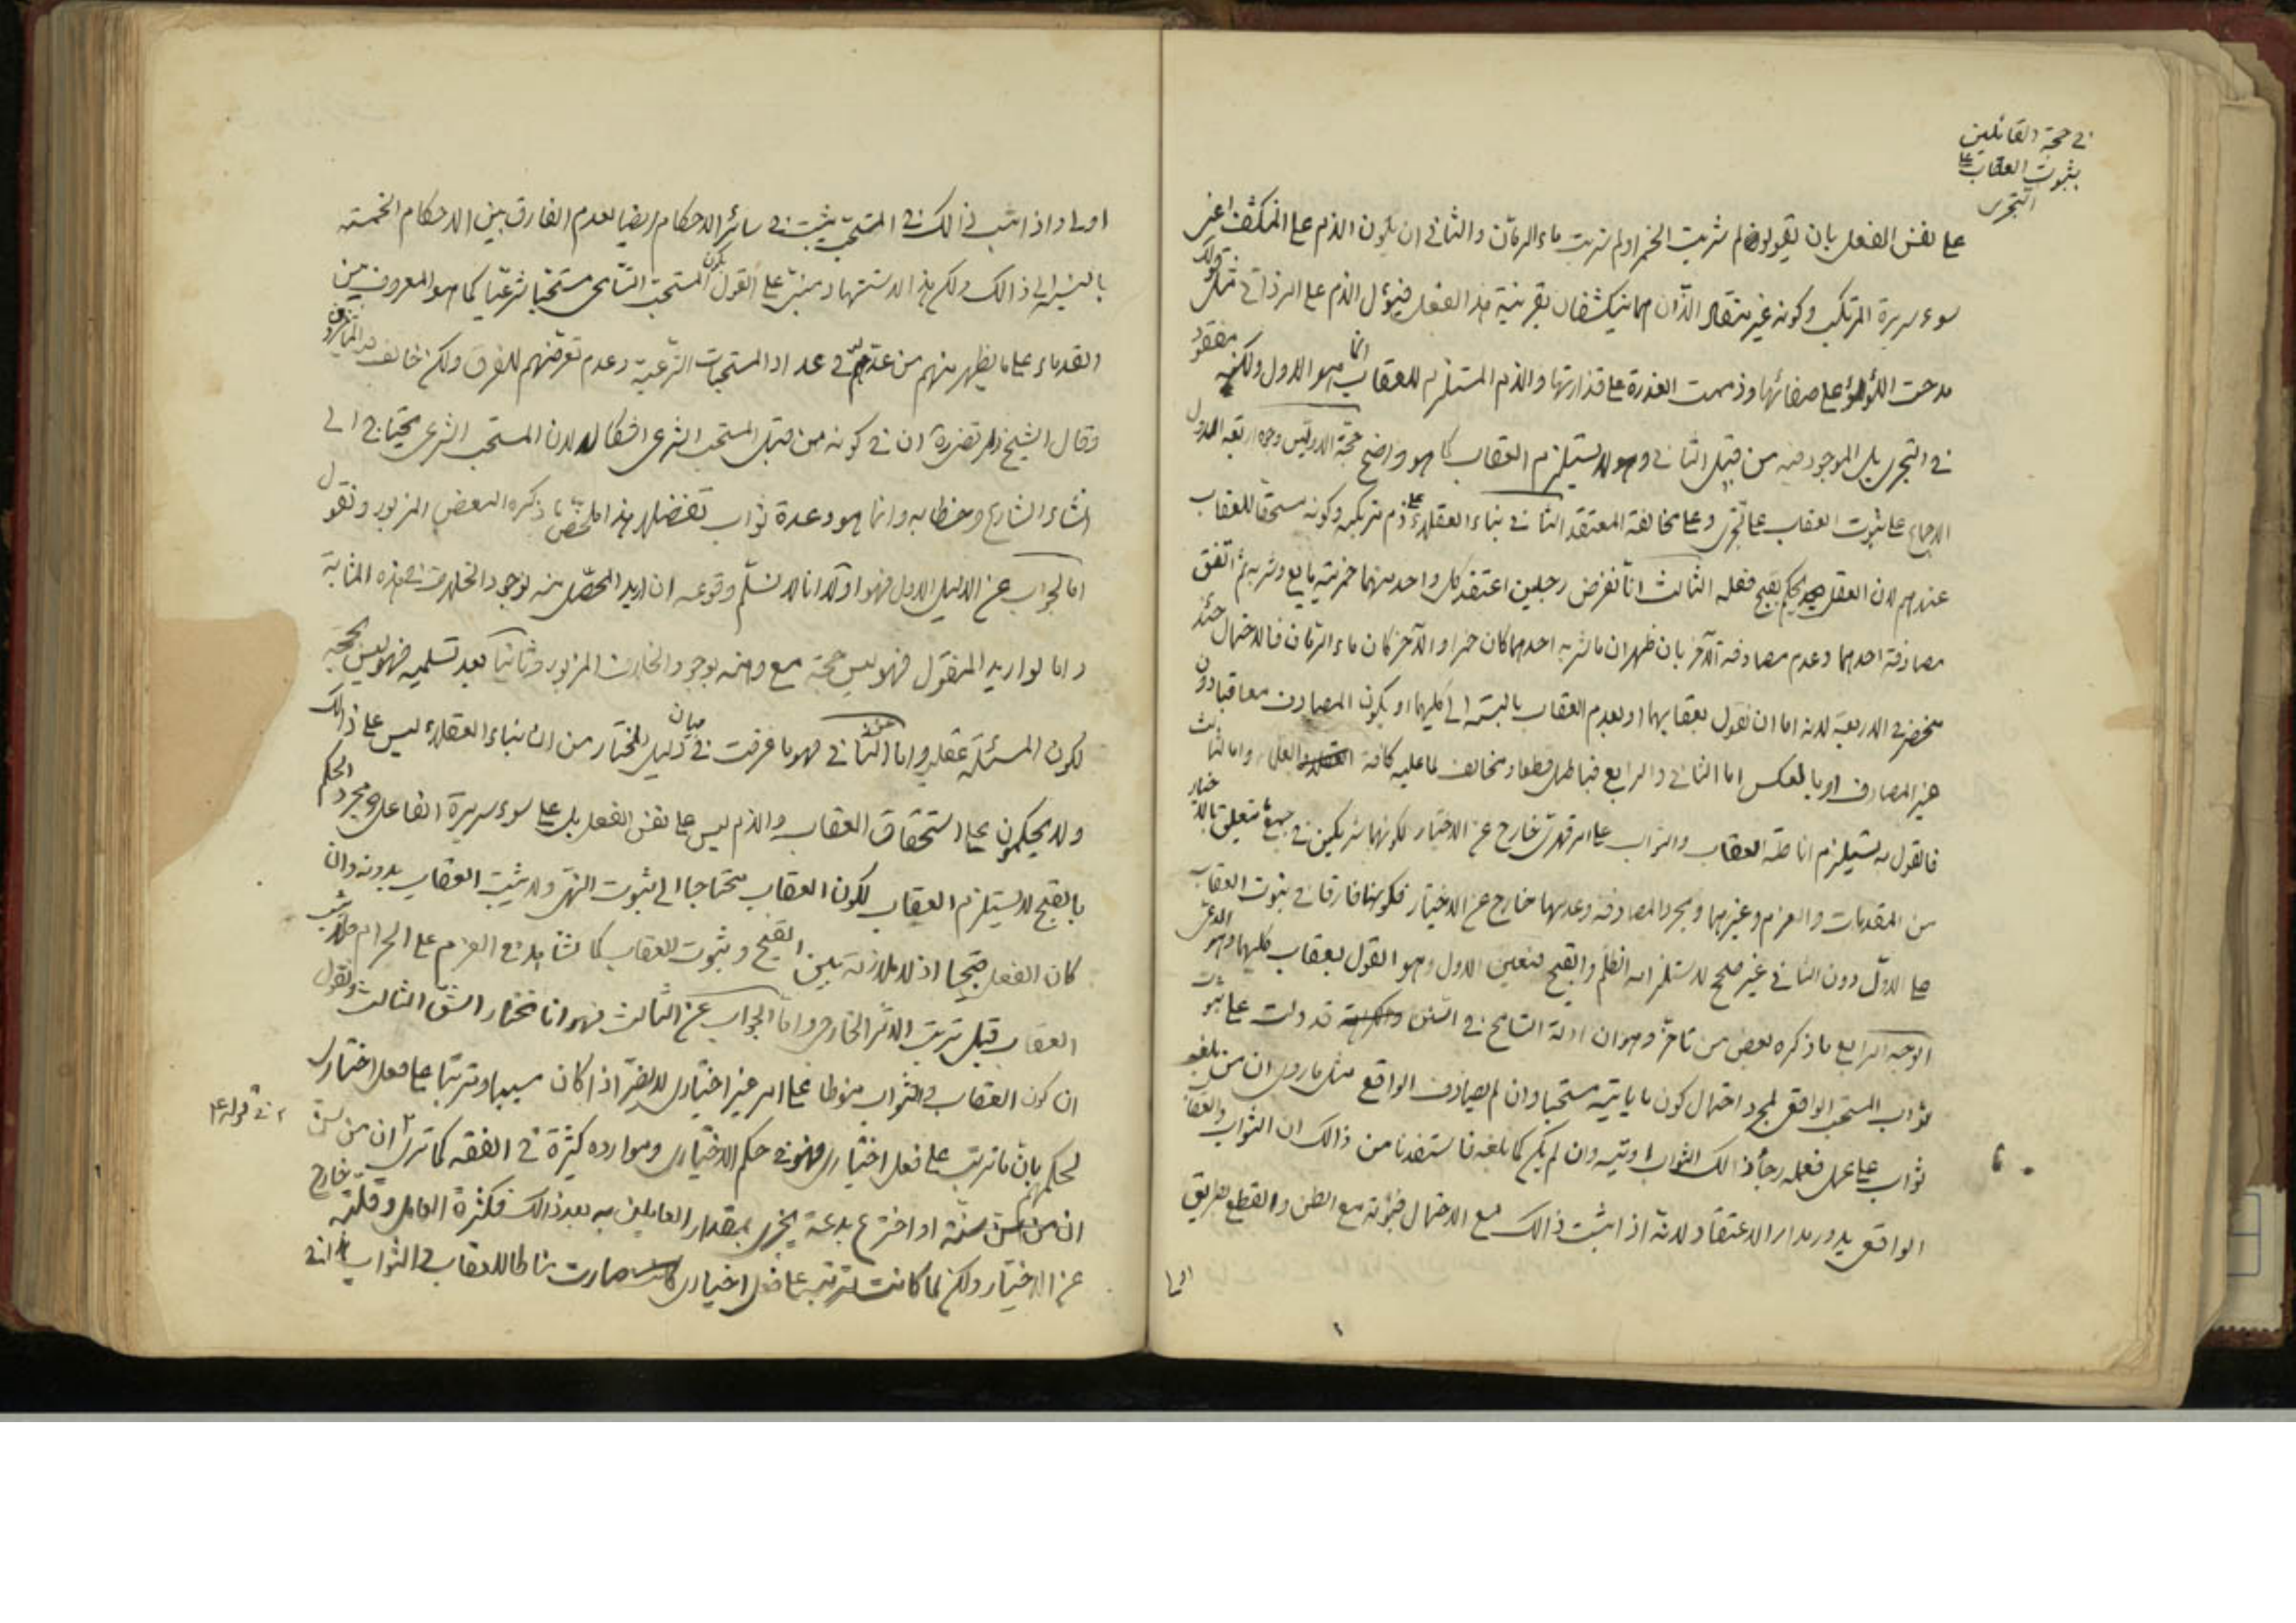 في حجة القائلين
بثبوت العقاب على
التجري
على نفس الفعل بان يقولوا لم شربت الخمر او لم شربت ماء الرمان والثاني ان يكون الذم على المنكشف اعني
سوء سريرة المرتكب وكونه غير منقاد الذان هما ينكشفان بقرينة هذا الفعل فيؤل الذم على الرذائي مثل قولك
مدحت اللؤلؤ على صفائها وذممت العذرة على قذارتها والذم المستلزم للعقاب انما هو الاول ولكنه مفقود
في التجري بل الموجود فيه من قبيل الثاني وهو لا يستلزم العقاب كما هو واضح حجة الاولين وجوه اربعة الاول
الاجماع على ثبوت العقاب على تجري وعلى مخالفة المعتقد الثاني بناء العقلاء على ذم مرتكبه وكونه مستحقا للعقاب
عندهم لان العقل يحكم بقبح فعله الثالث انا نفرض رجلين اعتقد كل واحد منهما خمرية مايع وشربه ثم اتفق
مصادفة احدهما وعدم مصادفة الآخر بان ظهر ان ما شربه احدهما كان خمرا والآخر كان ماء الرمان فالاحتمال حينئذ
منحصر في الاربعة لانه اما ان نقول بعقابهما او بعدم العقاب بالنسبة الى كليهما او يكون المصادف معاقبا دون
غير المصادف او بالعكس اما الثاني والرابع فباطل قطعا ومخالف لما عليه كافة العقلاء واما الثالث
فالقول به يستلزم اناطة العقاب والثواب على امر قهري خارج عن الاختيار لكونهما شريكين في جميع ما يتعلق بالاختيار
من المقدمات والعزم وغيرهما ومجرد المصادفة وعدمها خارج عن الاختيار فكونها فارقا في ثبوت العقاب
على الاول دون الثاني غير صالح لاستلزامه الظلم والقبح فتعين الاول وهو القول بعقاب كليهما وهو المدعى
الوجه الرابع ما ذكره بعض من تأخر وهو ان ادلة التسامح في السنن قد دلت على ثبوت
ثواب المستحب الواقعي لمجرد احتمال كون ما ياتيه مستحبا وان لم يصادف الواقع مثل ما روى ان من بلغه
ثواب على عمل ففعله رجاء ذالك الثواب اوتيه وان لم يكن كما بلغه فاستفدنا من ذالك ان الثواب والعقاب
الواقعي يدور مدار الاعتقاد ولانه اذا ثبت ذالك مع الاحتمال فثبوته مع الظن والقطع بطريق
اولى واذا ثبت ذالك في المستحب يثبت في سائر الاحكام ايضا لعدم الفارق بين الاحكام الخمسة
بالنسبة الى ذالك ولكن هذا الاستشهاد مبني على القول بكون المستحب التسامحي مستحبا شرعيا كما هو المعروف بين
القدماء على ما يظهر منهم من عدهم في عداد المستحبات الشرعية وعدم تعرضهم للفرق ولكن خالف
وقال الشيخ ان في كونه من قبيل المستحب الشرعي اشكالا لان المستحب الشرعي يحتاج الى
انشاء الشارع وخطابه وانما هو وعدة ثواب تفضلا هذا ملخص ما ذكره البعض المزبور ونقول
اما الجواب عن الدليل الاول فهو اولا انا لا نسلم وقوعه ان اريد المحصل منه لوجود الخلاف في هذه المثابة
واما لو اريد المنقول فهو ليس حجة مع وهنه بوجود الخلاف المزبور وثانيا بعد تسليمه فهو ليس بحجة
لكون المسئلة عقلي واما عن الثاني فهو ما عرفت في بيان دليل المختار من ان بناء العقلاء ليس على ذالك
ولا يحكمون على استحقاق العقاب والذم ليس على نفس الفعل بل على سوء سريرة الفاعل ومجرد الحكم
بالقبح لا يستلزم العقاب لكون العقاب محتاجا الى ثبوت النهي ولا يثبت العقاب بدونه وان
كان الفعل قبيحا اذ لا ملازمة بين القبح وثبوت العقاب كما نشاهد في العزم على الحرام
العقاب قبل ترتب الاثر الخارجي واما الجواب عن الثالث فهو انا نختار الشق الثالث ونقول
ان كون العقاب والثواب منوطا على امر غير اختياري لا يضر اذا كان مسببا ومترتبا على فعل اختياري
لحكمهم بان ما ترتب على فعل اختياري فهو في حكم الاختياري وموارده كثيرة في الفقه كما ترى ان من سن
ان من سن سنة او اخترع بدعة يجزى بمقدار العاملين به بعد ذالك فكثرة العامل وقلته خارج
عن الاختيار ولكن لما كانت مترتبة على فعل اختياري صارت مناطا للعقاب والثواب
في قوله ع